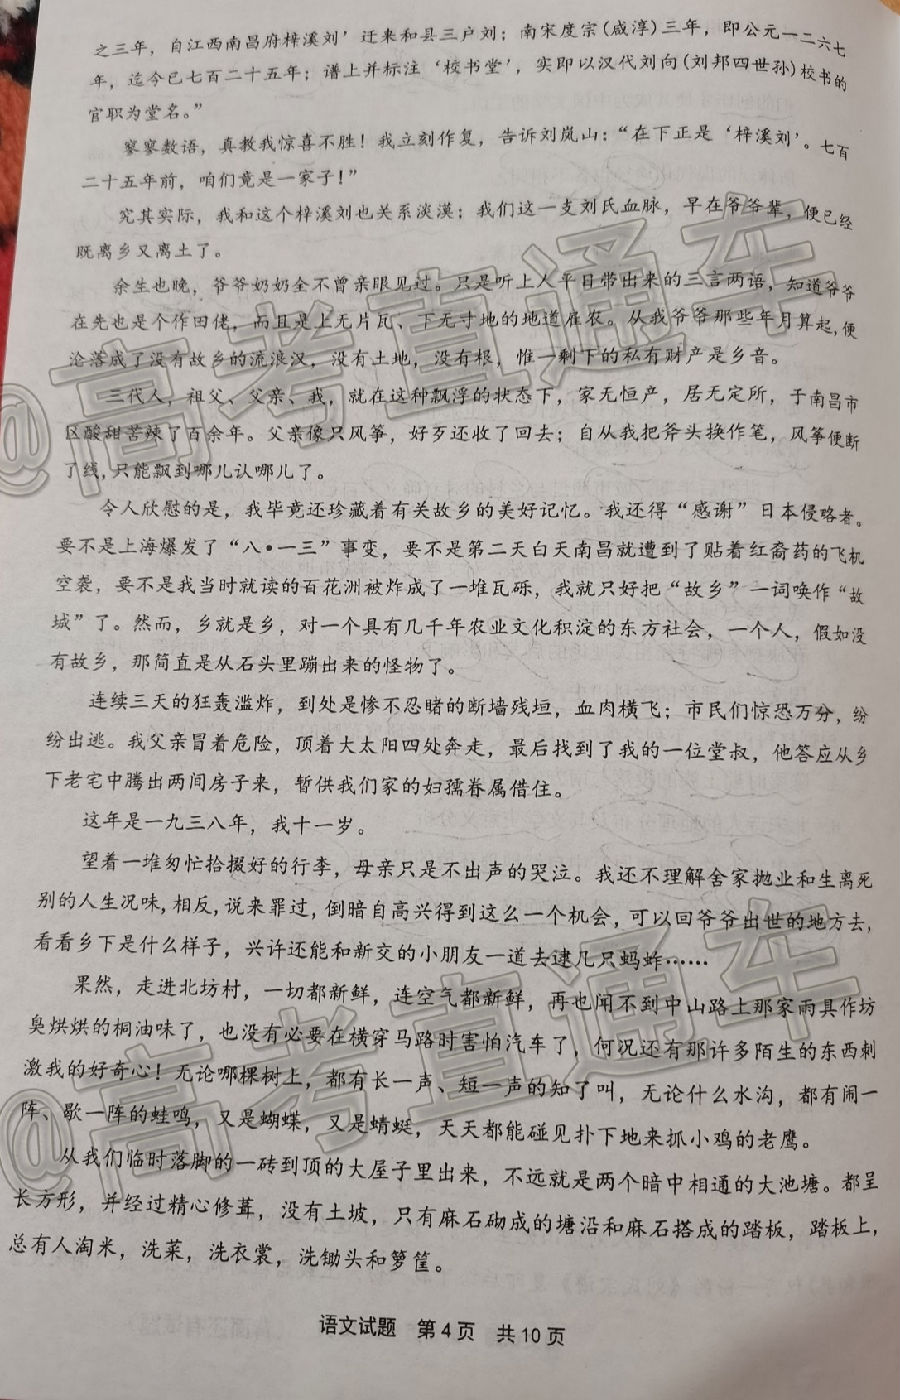 之三年，自江西南昌府梓溪刘’迁来和县三户刘；南宋度宗(咸淳)三年，即公元一二六七
年，迄今已七百二十五年；谱上并标注‘校书堂’，实即以汉代刘向(刘邦四世孙)校书的
官职为堂名。”
寥寥数语，真教我惊喜不胜！我立刻作复，告诉刘岚山：“在下正是‘梓溪刘’。七百
二十五年前，咱们竟是一家子！”
究其实际，我和这个梓溪刘也关系淡漠；我们这一支刘氏血脉，早在爷爷辈，便已经
既离乡又离土了。
余生也晚，爷爷奶奶全不曾亲眼见过。只是听上人平日带出来的三言两语，知道爷爷
在先也是个作田佬，而且是上无片瓦、下无寸地的地道雇农。从我爷爷那些年月算起，便
沦落成了没有故乡的流浪汉，没有土地，没有根，惟一剩下的私有财产是乡音。
三代人，祖父、父亲、我，就在这种飘浮的状态下，家无恒产，居无定所，于南昌市
区酸甜苦辣了百余年。父亲像只风筝，好歹还收了回去；自从我把斧头换作笔，风筝便断
了线，只能飘到哪儿认哪儿了。
令人欣慰的是，我毕竟还珍藏着有关故乡的美好记忆。我还得“感谢”日本侵略者。
要不是上海爆发了“八·一三”事变，要不是第二天白天南昌就遭到了贴着红膏药的飞机
空袭，要不是我当时就读的百花洲被炸成了一堆瓦砾，我就只好把“故乡”一词唤作“故
城”了。然而，乡就是乡，对一个具有几千年农业文化积淀的东方社会，一个人，假如没
有故乡，那简直是从石头里蹦出来的怪物了。
连续三天的狂轰滥炸，到处是惨不忍睹的断墙残垣，血肉横飞；市民们惊恐万分，纷
纷出逃。我父亲冒着危险，顶着大太阳四处奔走，最后找到了我的一位堂叔，他答应从乡
下老宅中腾出两间房子来，暂供我们家的妇孺眷属借住。
这年是一九三八年，我十一岁。
望着一堆匆忙拾掇好的行李，母亲只是不出声的哭泣。我还不理解舍家抛业和生离死
别的人生况味，相反，说来罪过，倒暗自高兴得到这么一个机会，可以回爷爷出世的地方去，
看看乡下是什么样子，兴许还能和新交的小朋友一道去逮几只蚂蚱……
果然，走进北坊村，一切都新鲜，连空气都新鲜，再也闻不到中山路上那家雨具作坊
臭烘烘的桐油味了，也没有必要在横穿马路时害怕汽车了，何况还有那许多陌生的东西刺
激我的好奇心！无论哪棵树上，都有长一声、短一声的知了叫，无论什么水沟，都有闹一
阵、歇一阵的蛙鸣，又是蝴蝶，又是蜻蜓，天天都能碰见扑下地来抓小鸡的老鹰。
从我们临时落脚的一砖到顶的大屋子里出来，不远就是两个暗中相通的大池塘。都呈
长方形，并经过精心修葺，没有土坡，只有麻石砌成的塘沿和麻石搭成的踏板，踏板上，
总有人淘米，洗菜，洗衣裳，洗锄头和箩筐。
语文试题 第4页 共10页
@高考直通车
@高考直通车